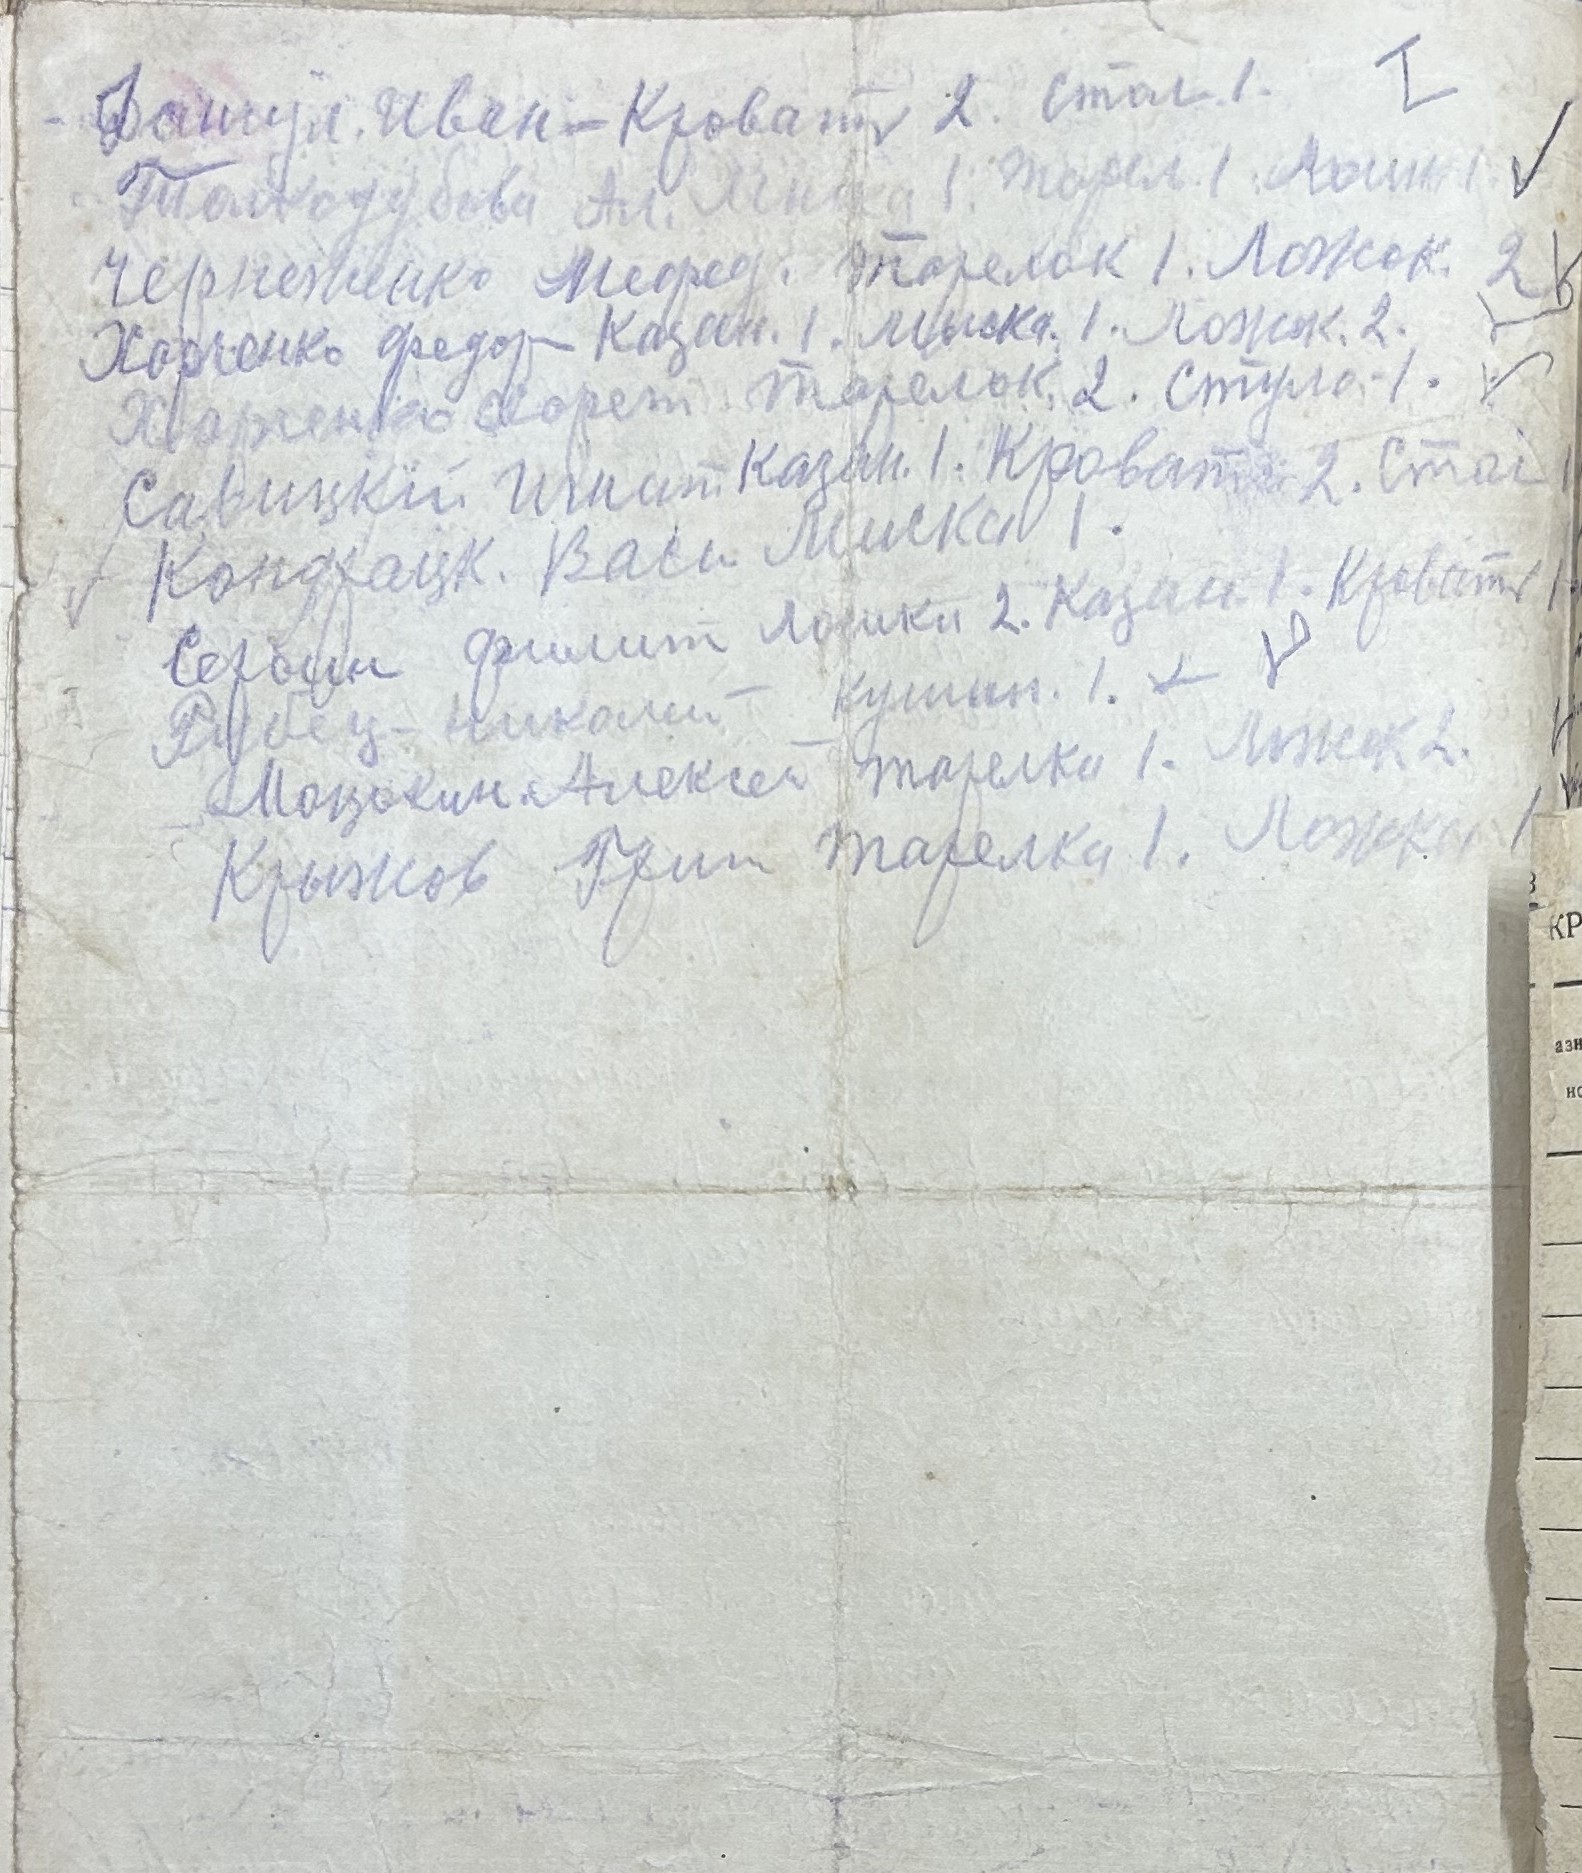 Иван – Кровать 2. Стол. 1. I
Толкодубова Ал. Миска 1. тарел. 1
Черниженко Мефед. Тарелок 1. Ложок. 2
Харченко Федор – Казан. 1. Мыска. 1. Ложк. 2.
Харченко Тарелок. 2. Стула 1.
Савицкій Игнат Казан. 1. Кровать 2. Стол 1
Кондрацк. Васи. Миска 1.
Сербин Филип Ложки 2. Казан. 1. Кровать 1.
Рубец – Николай – Кушин. 1.
Алексей тарелка 1. Ложек 2.
Крыжов Гриш тарелка 1. Ложка 1
КР
азн
но